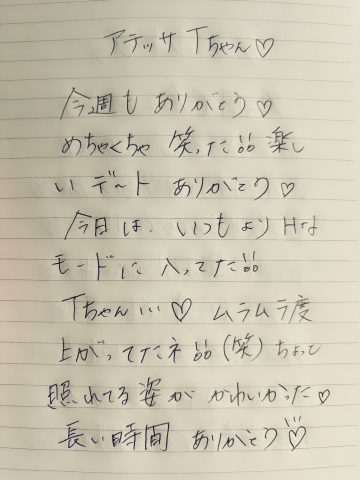 アテッサ Tちゃん♡
今週も ありがとう♡
めちゃくちゃ 笑った品 楽し
い デート ありがとう♡
今日は、いつもより Hな
モードに 入ってた品
Tちゃん… ♡ ムラムラ度
上がってたネ 品(笑) ちょっと
照れてる 姿が かわいかった♡
長い時間 ありがとう♡